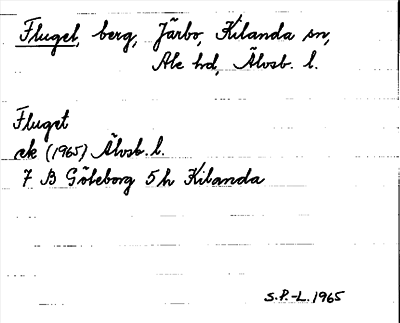 Fluget, berg, Järbo, Kilanda sn,
Ale hd, Älvsb. l.
Fluget
ek (1965) Älvsb. l.
7 B Göteborg 5h Kilanda
S.P.-L. 1965